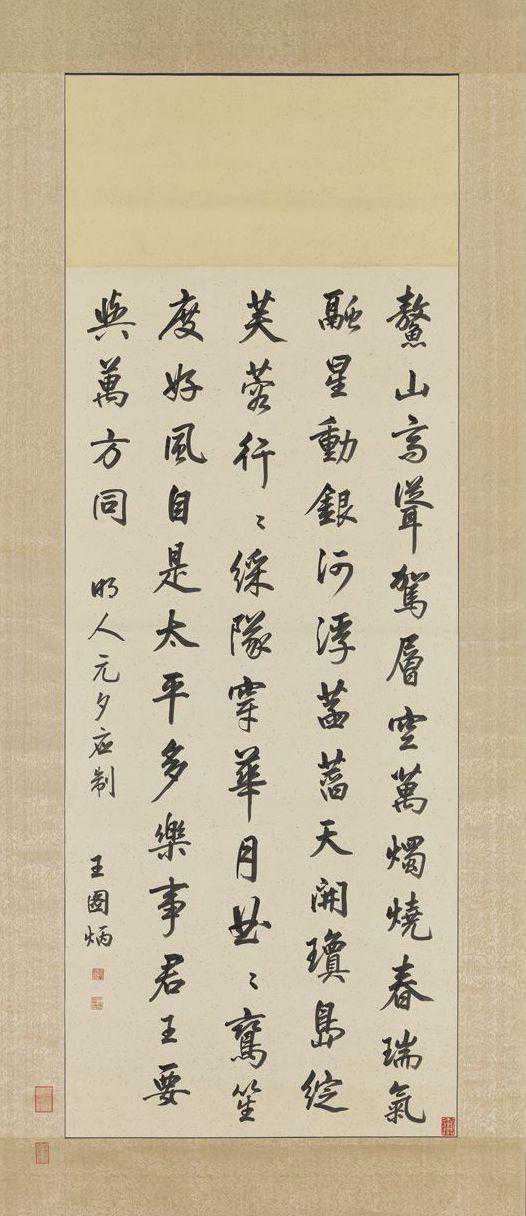 鰲山高聳駕層空萬燭燒春瑞氣
融星動銀河浮菡萏天開瓊島綻
芙蓉行〻綵隊穿華月曲〻鸞笙
度好風自是太平多樂事君王要
與萬方同 明人元夕應制 王圖炳